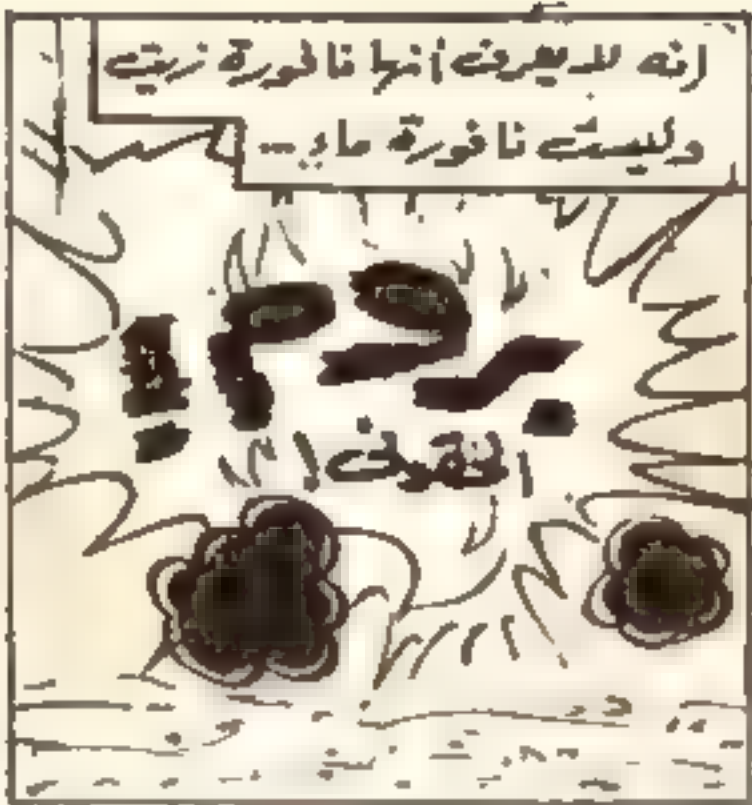 انه لا يعرف أنها نافورة زيت
وليست نافورة ماء...
بوم!!
الحقوني!